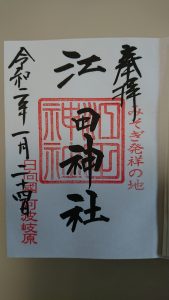 奉拝
みそぎ発祥の地
江田神社
江田神社
日向國阿波岐原
令和二年一月二十四日